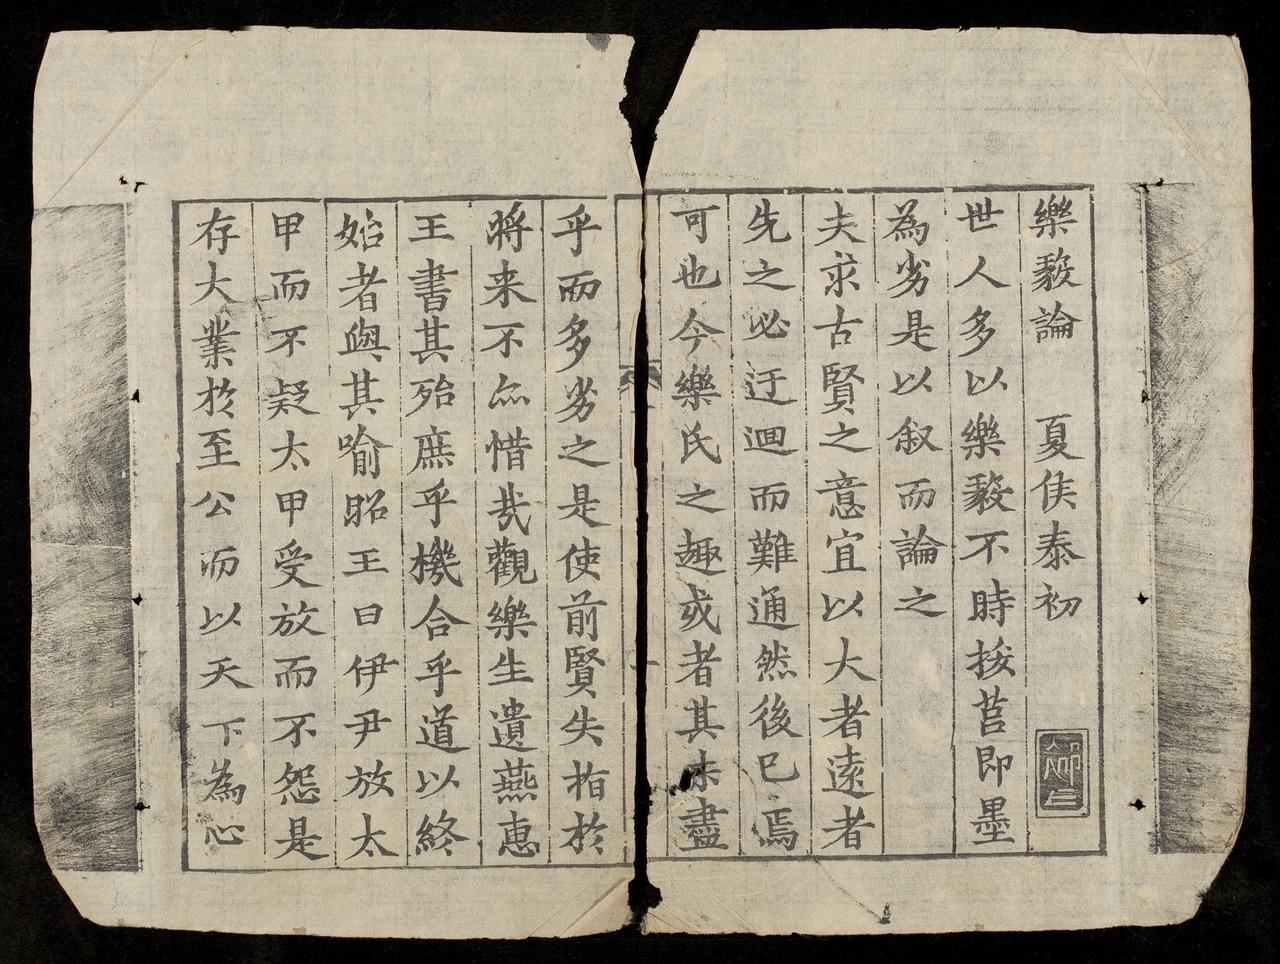 樂毅論 夏侯泰初
世人多以樂毅不時拔莒即墨
為劣是以叙而論之
夫求古賢之意宜以大者遠者
先之必迂迴而難通然後已焉
可也今樂氏之趣或者其未盡
乎而多劣之是使前賢失指於
將来不亦惜哉觀樂生遺燕惠
王書其殆庶乎機合乎道以終
始者與其喻昭王曰伊尹放太
甲而不疑太甲受放而不怨是
存大業於至公而以天下為心